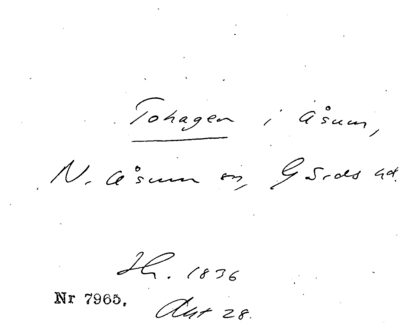 Tohagen i Åsum,
N. Åsum sn, Gärds hd.
Hr. 1836
Nr 7965. Akt 28.